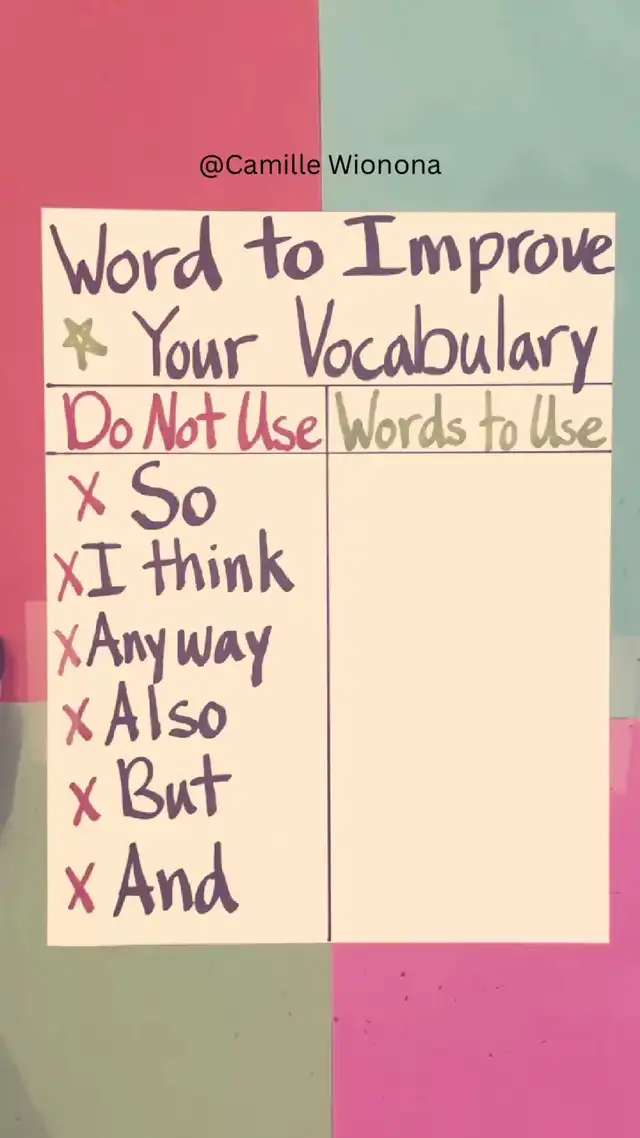 @Camille Wionona
Word to Improve
Your Vocabulary
Do Not Use Words to Use
X So
X I think
X Anyway
X Also
X But
X And